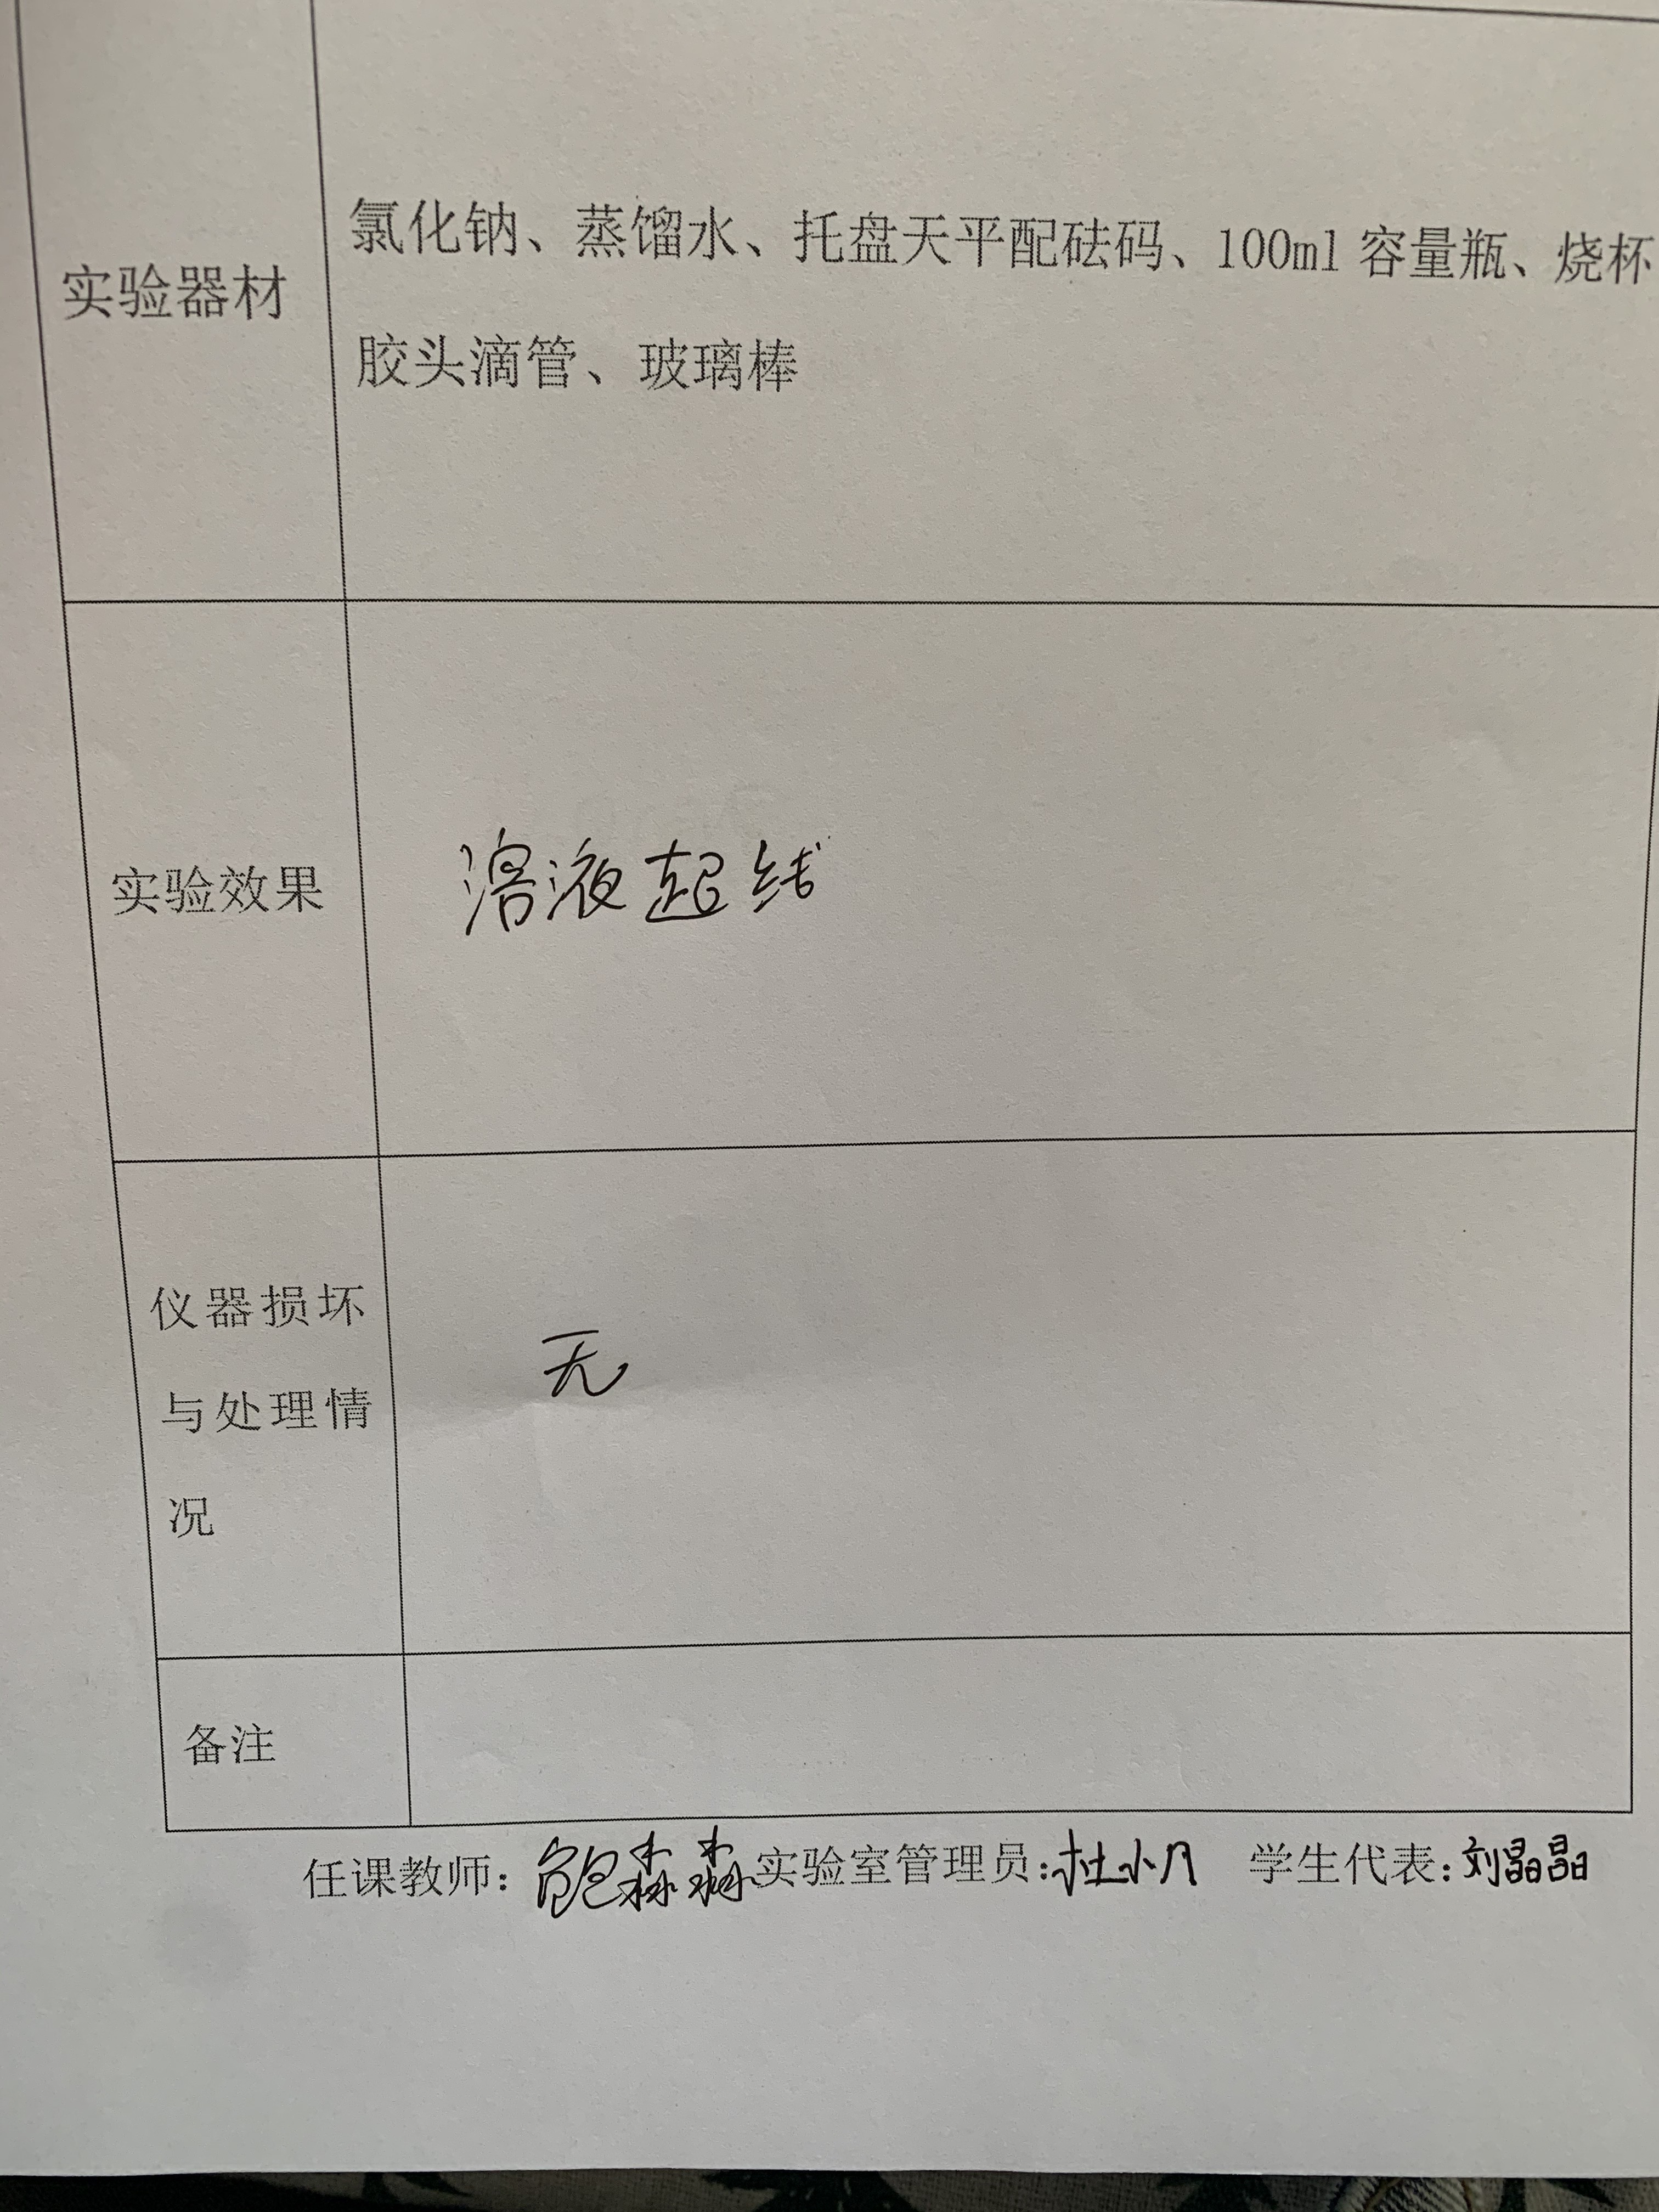 氯化钠、蒸馏水、托盘天平配砝码、100ml 容量瓶、烧杯
实验器材
胶头滴管、玻璃棒
实验效果
溶液起线
仪器损坏
与处理情
况
无
备注
任课教师：鲍淼淼 实验室管理员：杜小月 学生代表：刘晶晶